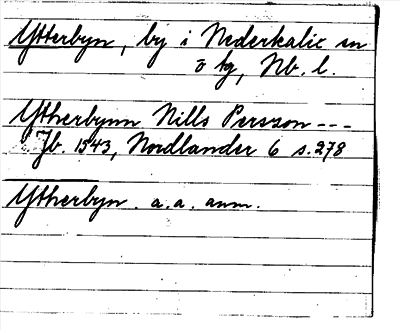 Ytterbyn, by i Nederkalix sn
o tg, Nb. l.
Ytherbynn Nills Persson ---
Jb. 1543, Nordlander 6 s. 278
Ytherbyn. a. a. anm.